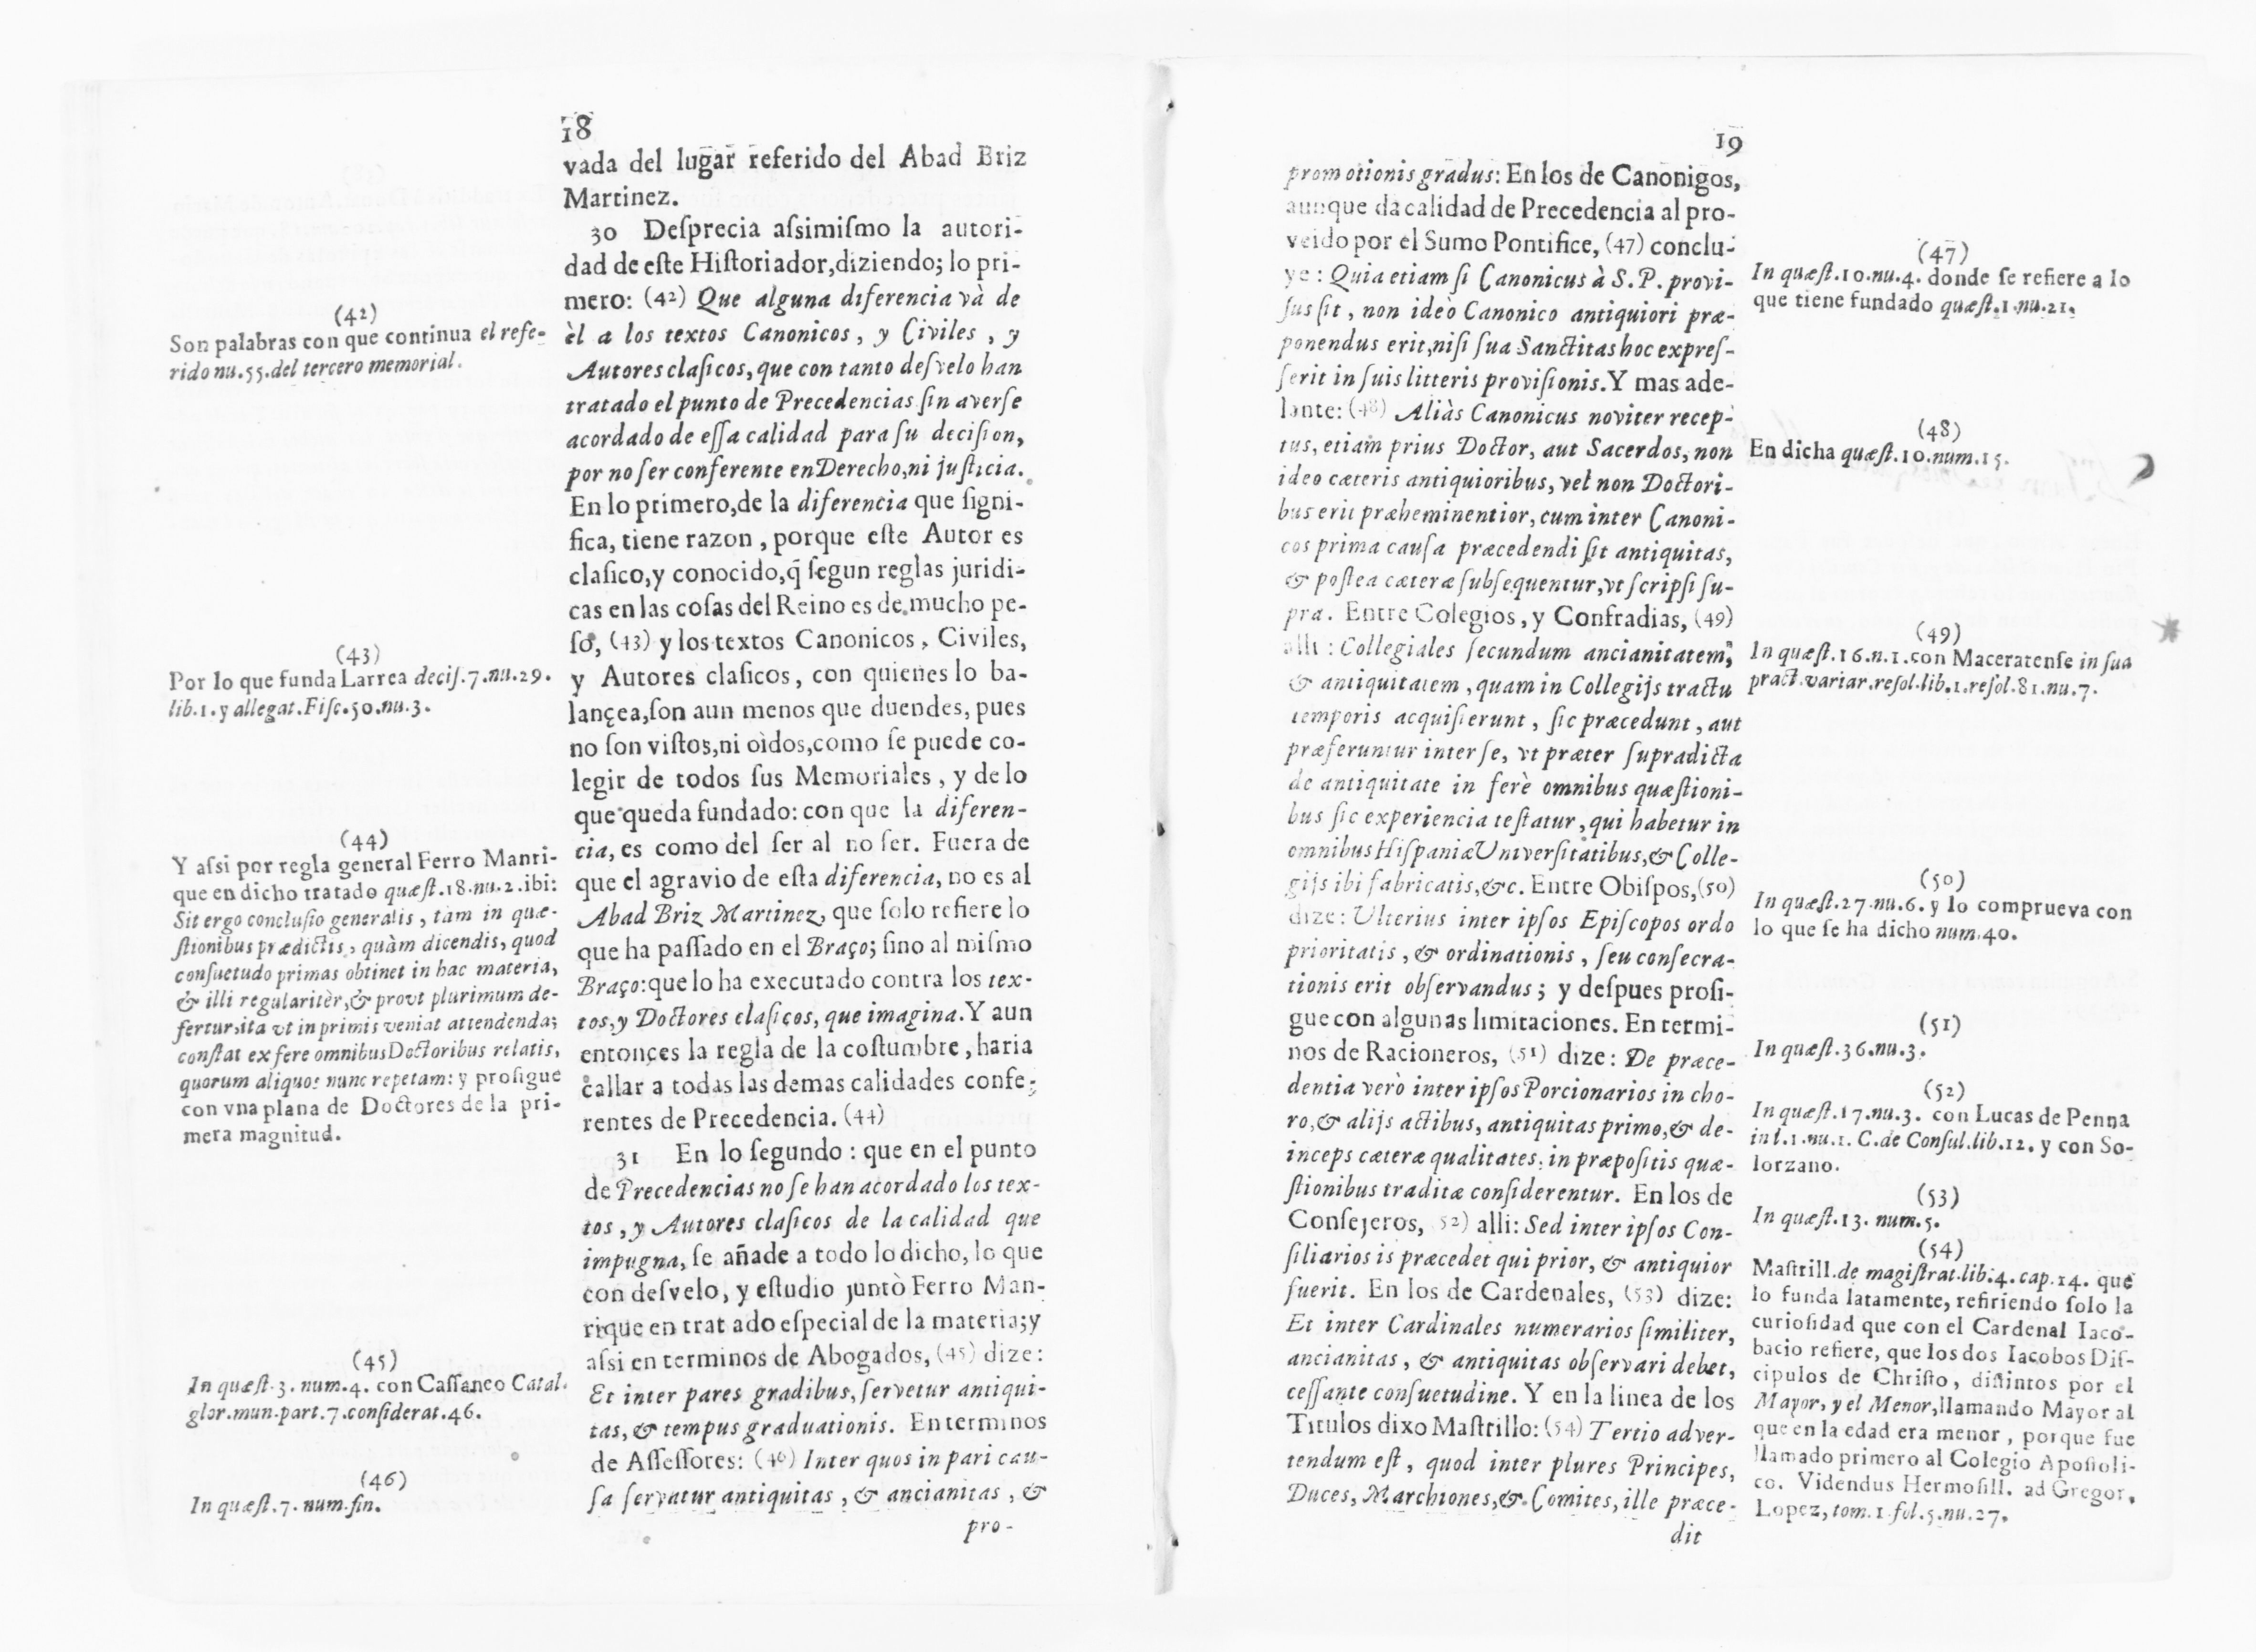 18
vada del lugar referido del Abad Briz
Martinez.
30 Deſprecia aſsimiſmo la autori-
dad de eſte Hiſtoriador,diziendo; lo pri-
mero: (42) Que alguna diferencia và de
èl a los textos Canonicos, y Civiles, y
Autores claſicos, que con tanto deſvelo han
tratado el punto de Precedencias ſin averſe
acordado de eſſa calidad para ſu deciſion,
por no ſer conferente en Derecho,ni juſticia.
En lo primero,de la diferencia que ſigni-
fica, tiene razon, porque eſte Autor es
claſico,y conocido,q̃ ſegun reglas juridi-
cas en las coſas del Reino es de mucho pe-
ſo, (43) y los textos Canonicos, Civiles,
y Autores claſicos, con quienes lo ba-
lançea,ſon aun menos que duendes, pues
no ſon viſtos,ni oìdos,como ſe puede co-
legir de todos ſus Memoriales, y de lo
que queda fundado: con que la diferen-
cia, es como del ſer al no ſer. Fuera de
que el agravio de eſta diferencia, no es al
Abad Briz Martinez, que ſolo refiere lo
que ha paſſado en el Braço; ſino al miſmo
Braço:que lo ha executado contra los tex-
tos,y Doctores claſicos, que imagina. Y aun
entonçes la regla de la coſtumbre, haria
callar a todas las demas calidades confe-
rentes de Precedencia. (44)
31 En lo ſegundo: que en el punto
de Precedencias no ſe han acordado los tex-
tos, y Autores claſicos de la calidad que
impugna, ſe añade a todo lo dicho, lo que
con deſvelo, y eſtudio juntò Ferro Man-
rique en trat ado eſpecial de la materia;y
aſsi en terminos de Abogados, (45) dize:
Et inter pares gradibus, ſervetur antiqui-
tas, & tempus graduationis. En terminos
de Aſſeſſores: (46) Inter quos in pari cau-
ſa ſervatur antiquitas, & ancianitas, &
pro-
(42)
Son palabras con que continua el refe-
rido nu.55.del tercero memorial.
(43)
Por lo que funda Larrea deciſ.7.nu.29.
lib.1.y allegat.Fiſc.50.nu.3.
(44)
Y aſsi por regla general Ferro Manri-
que en dicho tratado quæſt.18.nu.2.ibi:
Sit ergo concluſio generalis, tam in quæ-
ſtionibus prædictis, quàm dicendis, quod
conſuetudo primas obtinet in hac materia,
& illi regularitèr,& prout plurimum de-
fertur,ita vt in primis veniat attendenda;
conſtat ex fere omnibus Doctoribus relatis,
quorum aliquos nunc repetam: y proſigue
con vna plana de Doctores de la pri-
mera magnitud.
(45)
In quæſt.3.num.4. con Caſſaneo Catal.
glor.mun.part.7.conſiderat.46.
(46)
In quæſt.7.num.fin.
19
promotionis gradus: En los de Canonigos,
aunque da calidad de Precedencia al pro-
veido por el Sumo Pontifice, (47) conclu-
ye: Quia etiam ſi Canonicus à S.P. provi-
ſus ſit, non ideò Canonico antiquiori præ-
ponendus erit,niſi ſua Sanctitas hoc expreſ-
ſerit in ſuis litteris proviſionis. Y mas ade-
lante: (48) Aliàs Canonicus noviter recep-
tus, etiam prius Doctor, aut Sacerdos, non
ideo cæteris antiquioribus, vel non Doctori-
bus erit præheminentior, cum inter Canoni-
cos prima cauſa præcedendi ſit antiquitas,
& poſtea cæteræ ſubſequentur,vt ſcripſi ſu-
pra. Entre Colegios, y Confradias, (49)
alli: Collegiales ſecundum ancianitatem,
& antiquitatem, quam in Collegijs tractu
temporis acquiſierunt, ſic præcedunt, aut
præferuntur inter ſe, vt præter ſupradicta
de antiquitate in ferè omnibus quæſtioni-
bus ſic experiencia teſtatur, qui habetur in
omnibus Hiſpaniæ Univerſitatibus,& Colle-
gijs ibi fabricatis,&c. Entre Obiſpos,(50)
dize: Ulterius inter ipſos Epiſcopos ordo
prioritatis, & ordinationis, ſeu conſecra-
tionis erit obſervandus; y deſpues proſi-
gue con algunas limitaciones. En termi-
nos de Racioneros, (51) dize: De præce-
dentia verò inter ipſos Porcionarios in cho-
ro,& alijs actibus, antiquitas primo,& de-
inceps cæteræ qualitates, in præpoſitis quæ-
ſtionibus traditæ conſiderentur. En los de
Conſejeros, (52) alli: Sed inter ipſos Con-
ſiliarios is præcedet qui prior, & antiquior
fuerit. En los de Cardenales, (53) dize:
Et inter Cardinales numerarios ſimiliter,
ancianitas, & antiquitas obſervari debet,
ceſſante conſuetudine. Y en la linea de los
Titulos dixo Maſtrillo: (54) Tertio adver-
tendum eſt, quod inter plures Principes,
Duces, Marchiones,& Comites, ille præce-
dit
(47)
In quæſt.10.nu.4. donde ſe refiere a lo
que tiene fundado quæſt.1.nu.21.
(48)
En dicha quæſt.10.num.15.
(49)
In quæſt.16.n.1.con Maceratenſe in ſua
pract.variar.reſol.lib.1.reſol.81.nu.7.
(50)
In quæſt.27.nu.6. y lo comprueva con
lo que ſe ha dicho num.40.
(51)
In quæſt.36.nu.3.
(52)
In quæſt.17.nu.3. con Lucas de Penna
in l.1.nu.1. C.de Conſul.lib.12. y con So-
lorzano.
(53)
In quæſt.13. num.5.
(54)
Maſtrill.de magiſtrat.lib.4.cap.14. que
lo funda latamente, refiriendo ſolo la
curioſidad que con el Cardenal Iaco-
bacio refiere, que los dos Iacobos Diſ-
cipulos de Chriſto, diſtintos por el
Mayor, y el Menor,llamando Mayor al
que en la edad era menor, porque fue
llamado primero al Colegio Apoſtoli-
co. Videndus Hermoſill. ad Gregor.
Lopez, tom.1.fol.5.nu.27.